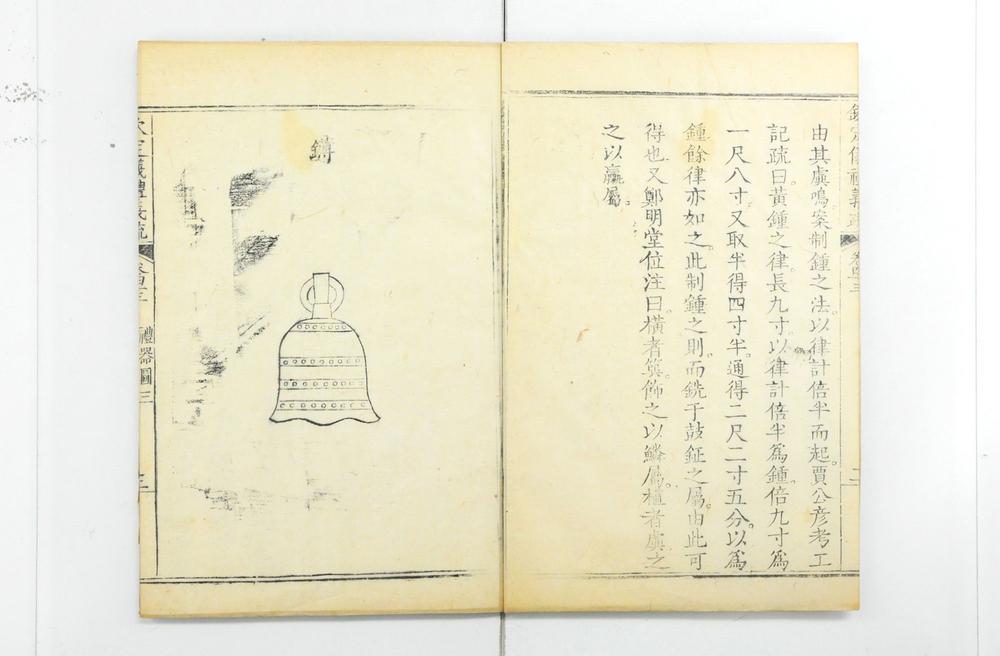 由其虡鳴。案制鍾之法。以律計倍半而起。賈公彦考工
記疏曰。黃鍾之律長九寸。以律計倍半爲鍾。倍九寸爲
一尺八寸。又取半得四寸半。通得二尺二寸五分。以爲
鍾。餘律亦如之。此制鍾之則。而銑于鼓鉦之屬。由此可
得也。又鄭明堂位注曰。橫者簨。飾之以鱗屬。植者虡。之
之以臝屬。
欽定儀禮義疏
卷四十三
二
鎛
欽定儀禮義疏
卷四十三
禮器圖三
三